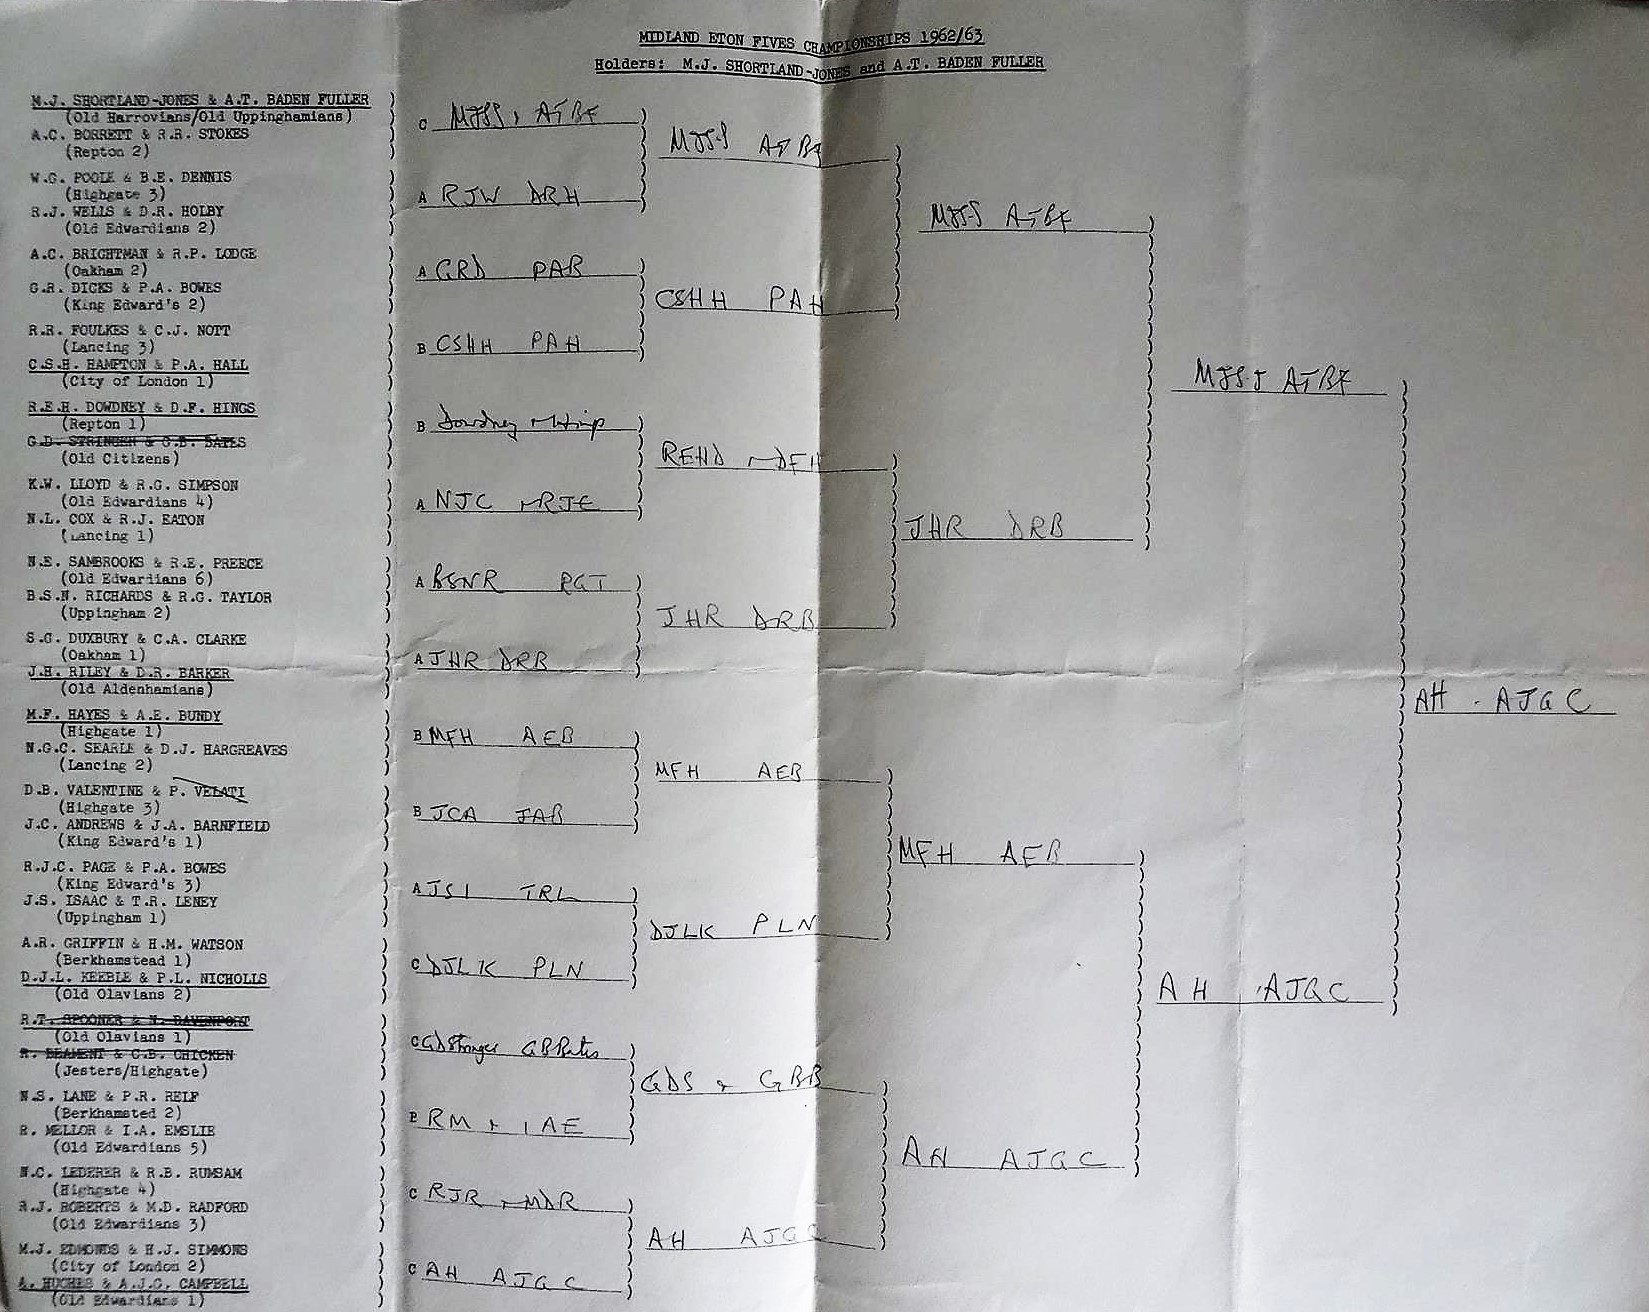 MIDLAND ETON FIVES CHAMPIONSHIPS 1962/63
Holders: M.J. SHORTLAND-JONES and A.T. BADEN FULLER
M.J. SHORTLAND-JONES & A.T. BADEN FULLER
(Old Harrovians/Old Uppinghamians)
A.C. BORRETT & R.R. STOKES
(Repton 2)
W.G. POOLE & B.E. DENNIS
(Highgate 3)
R.J. WELLS & D.R. HOLBY
(Old Edwardians 2)
A.C. BRIGHTMAN & R.P. LODGE
(Oakham 2)
G.R. DICKS & P.A. BOWES
(King Edward's 2)
R.R. FOULKES & C.J. NOTT
(Lancing 3)
C.S.H. HAMPTON & P.A. HALL
(City of London 1)
R.E.H. DOWDNEY & D.F. HINGS
(Repton 1)
G.D. STRINGER & G.B. BATES
(Old Citizens)
K.W. LLOYD & R.G. SIMPSON
(Old Edwardians 4)
N.L. COX & R.J. EATON
(Lancing 1)
N.E. SAMBROOKS & R.E. PREECE
(Old Edwardians 6)
B.S.N. RICHARDS & R.G. TAYLOR
(Uppingham 2)
S.G. DUXBURY & C.A. CLARKE
(Oakham 1)
J.H. RILEY & D.R. BARKER
(Old Aldenhamians)
M.F. HAYES & A.E. BUNDY
(Highgate 1)
N.G.C. SEARLE & D.J. HARGREAVES
(Lancing 2)
D.B. VALENTINE & P. VELATI
(Highgate 3)
J.C. ANDREWS & J.A. BARNFIELD
(King Edward's 1)
R.J.C. PAGE & P.A. BOWES
(King Edward's 3)
J.S. ISAAC & T.R. LENEY
(Uppingham 1)
A.R. GRIFFIN & H.M. WATSON
(Berkhamstead 1)
D.J.L. KEEBLE & P.L. NICHOLLS
(Old Olavians 2)
R.T. SPOONER & N. DAVENPORT
(Old Olavians 1)
R. BEAMENT & C.B. CHICKEN
(Jesters/Highgate)
N.S. LANE & P.R. RELF
(Berkhamsted 2)
R. MELLOR & I.A. EMSLIE
(Old Edwardians 5)
N.C. LEDERER & R.B. RUMSAM
(Highgate 4)
R.J. ROBERTS & M.D. RADFORD
(Old Edwardians 3)
M.J. EDMONDS & H.J. SIMMONS
(City of London 2)
A. HUGHES & A.J.G. CAMPBELL
(Old Edwardians 1)
C MJSJ, ATBF
A RJW DRH
A GRD PAB
B CSHH PAH
B Dowdney + Hings
A NJC + RJE
A BSNR RGT
A JHR DRB
B MFH AEB
B JCA JAB
A JSI TRL
C DJLK PLN
C GD Stringer GB Bates
B RM + IAE
C RJR + MDR
C AH AJGC
MJS-J ATBF
CSHH PAH
REHD + DFH
JHR DRB
MFH AEB
DJLK PLN
GDS + GBB
AH AJGC
MJS-J ATBF
JHR DRB
MFH AEB
AH AJGC
MJS-J ATBF
AH AJGC
AH . AJGC